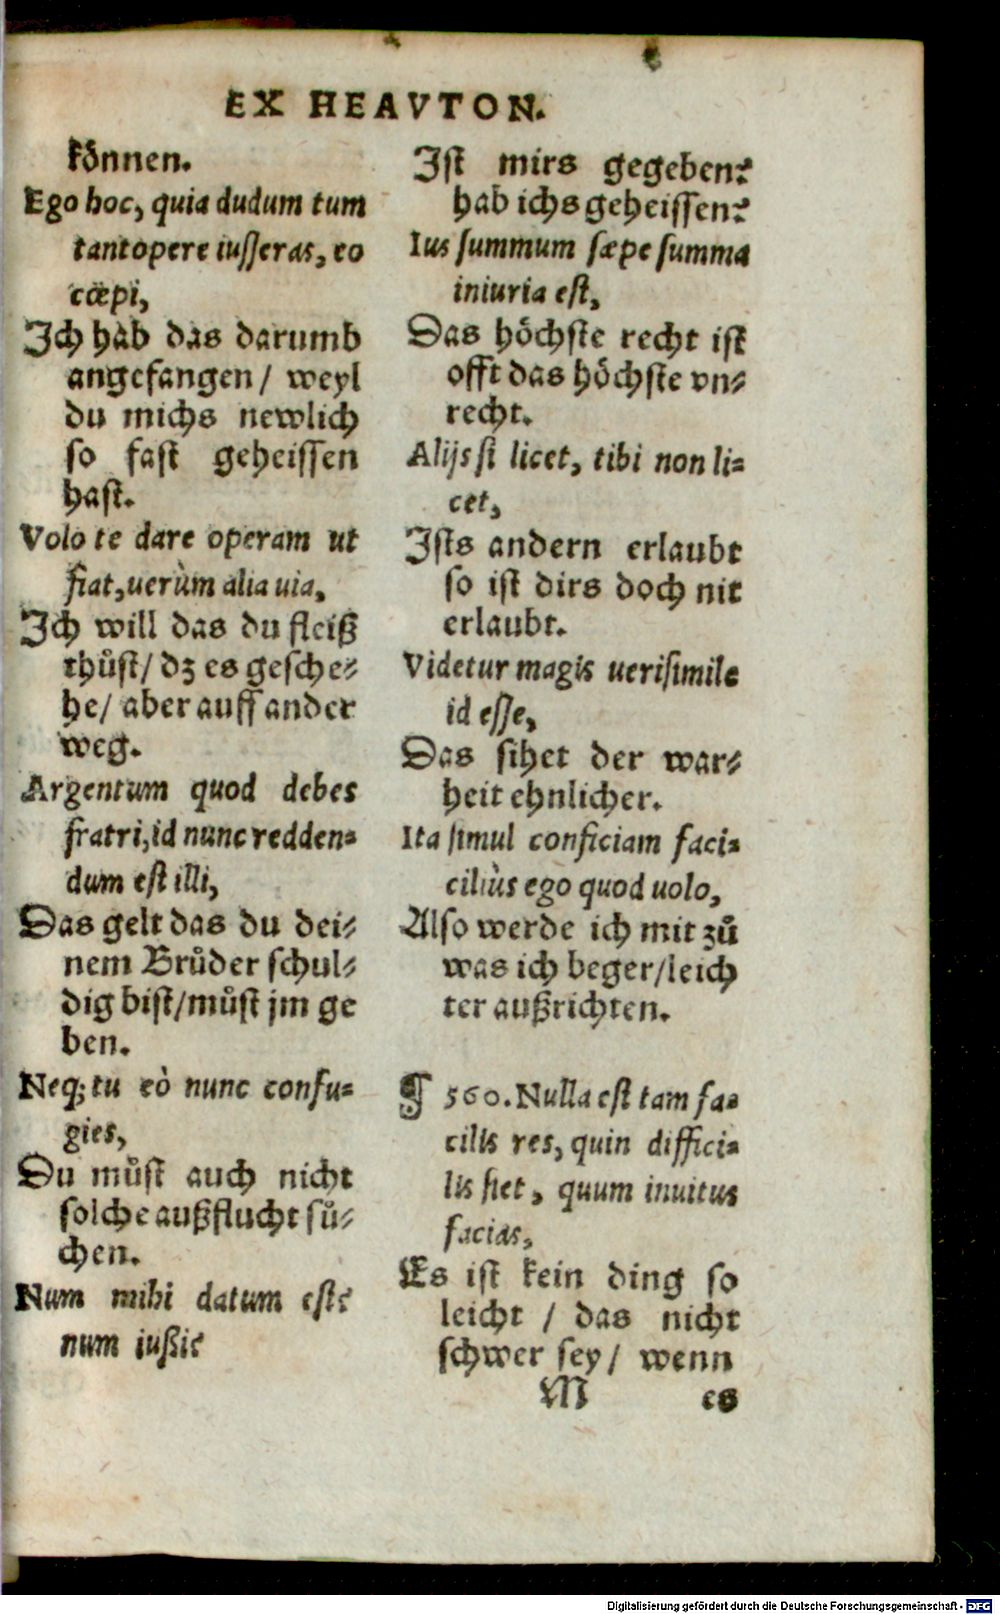 EX HEAVTON.
können.
Ego hoc, quia dudum tum
tantopere iusseras, eo
cœpi,
Ich hab das darumb
angefangen / weyl
du michs newlich
so fast geheissen
hast.
Volo te dare operam ut
fiat, uerùm alia uia,
Ich will das du fleiß
thůst / dz es gesche-
he / aber auff ander
weg.
Argentum quod debes
fratri, id nunc redden-
dum est illi,
Das gelt das du dei-
nem Brůder schul-
dig bist / můst jm ge
ben.
Neq; tu eò nunc confu-
gies,
Du můst auch nicht
solche außflucht sů-
chen.
Num mihi datum est?
num iußi?
Ist mirs gegeben?
hab ichs geheissen?
Ius summum sæpe summa
iniuria est,
Das höchste recht ist
offt das höchste vn-
recht.
Alijs si licet, tibi non li-
cet,
Ists andern erlaubt
so ist dirs doch nit
erlaubt.
Videtur magis uerisimile
id esse,
Das sihet der war-
heit ehnlicher.
Ita simul conficiam faci-
ciliùs ego quod uolo,
Also werde ich mit zů
was ich beger / leich
ter außrichten.
¶ 560. Nulla est tam fa-
cilis res, quin diffici-
lis siet, quum inuitus
facias,
Es ist kein ding so
leicht / das nicht
schwer sey / wenn
M es
Digitalisierung gefördert durch die Deutsche Forschungsgemeinschaft - DFG